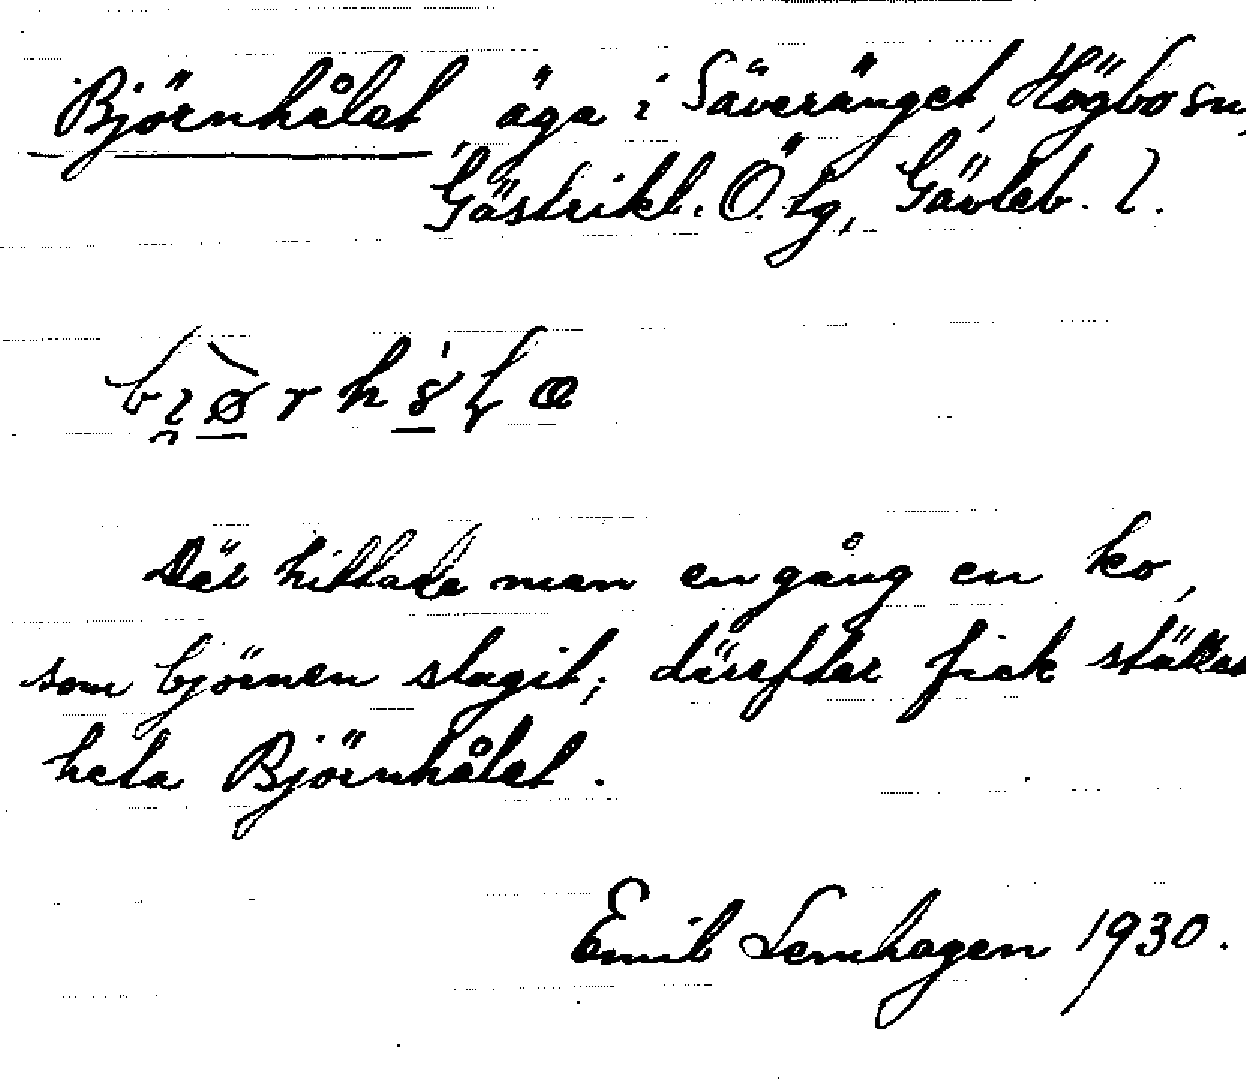 Björnhålet, äga i Säveränget, Högbo sn,
Gästrikl. Ö. tg, Gävleb. l.
Där hittade man en gång en ko,
som björnen slagit; därefter fick stället
heta Björnhålet.
Emil Lernhagen 1930.